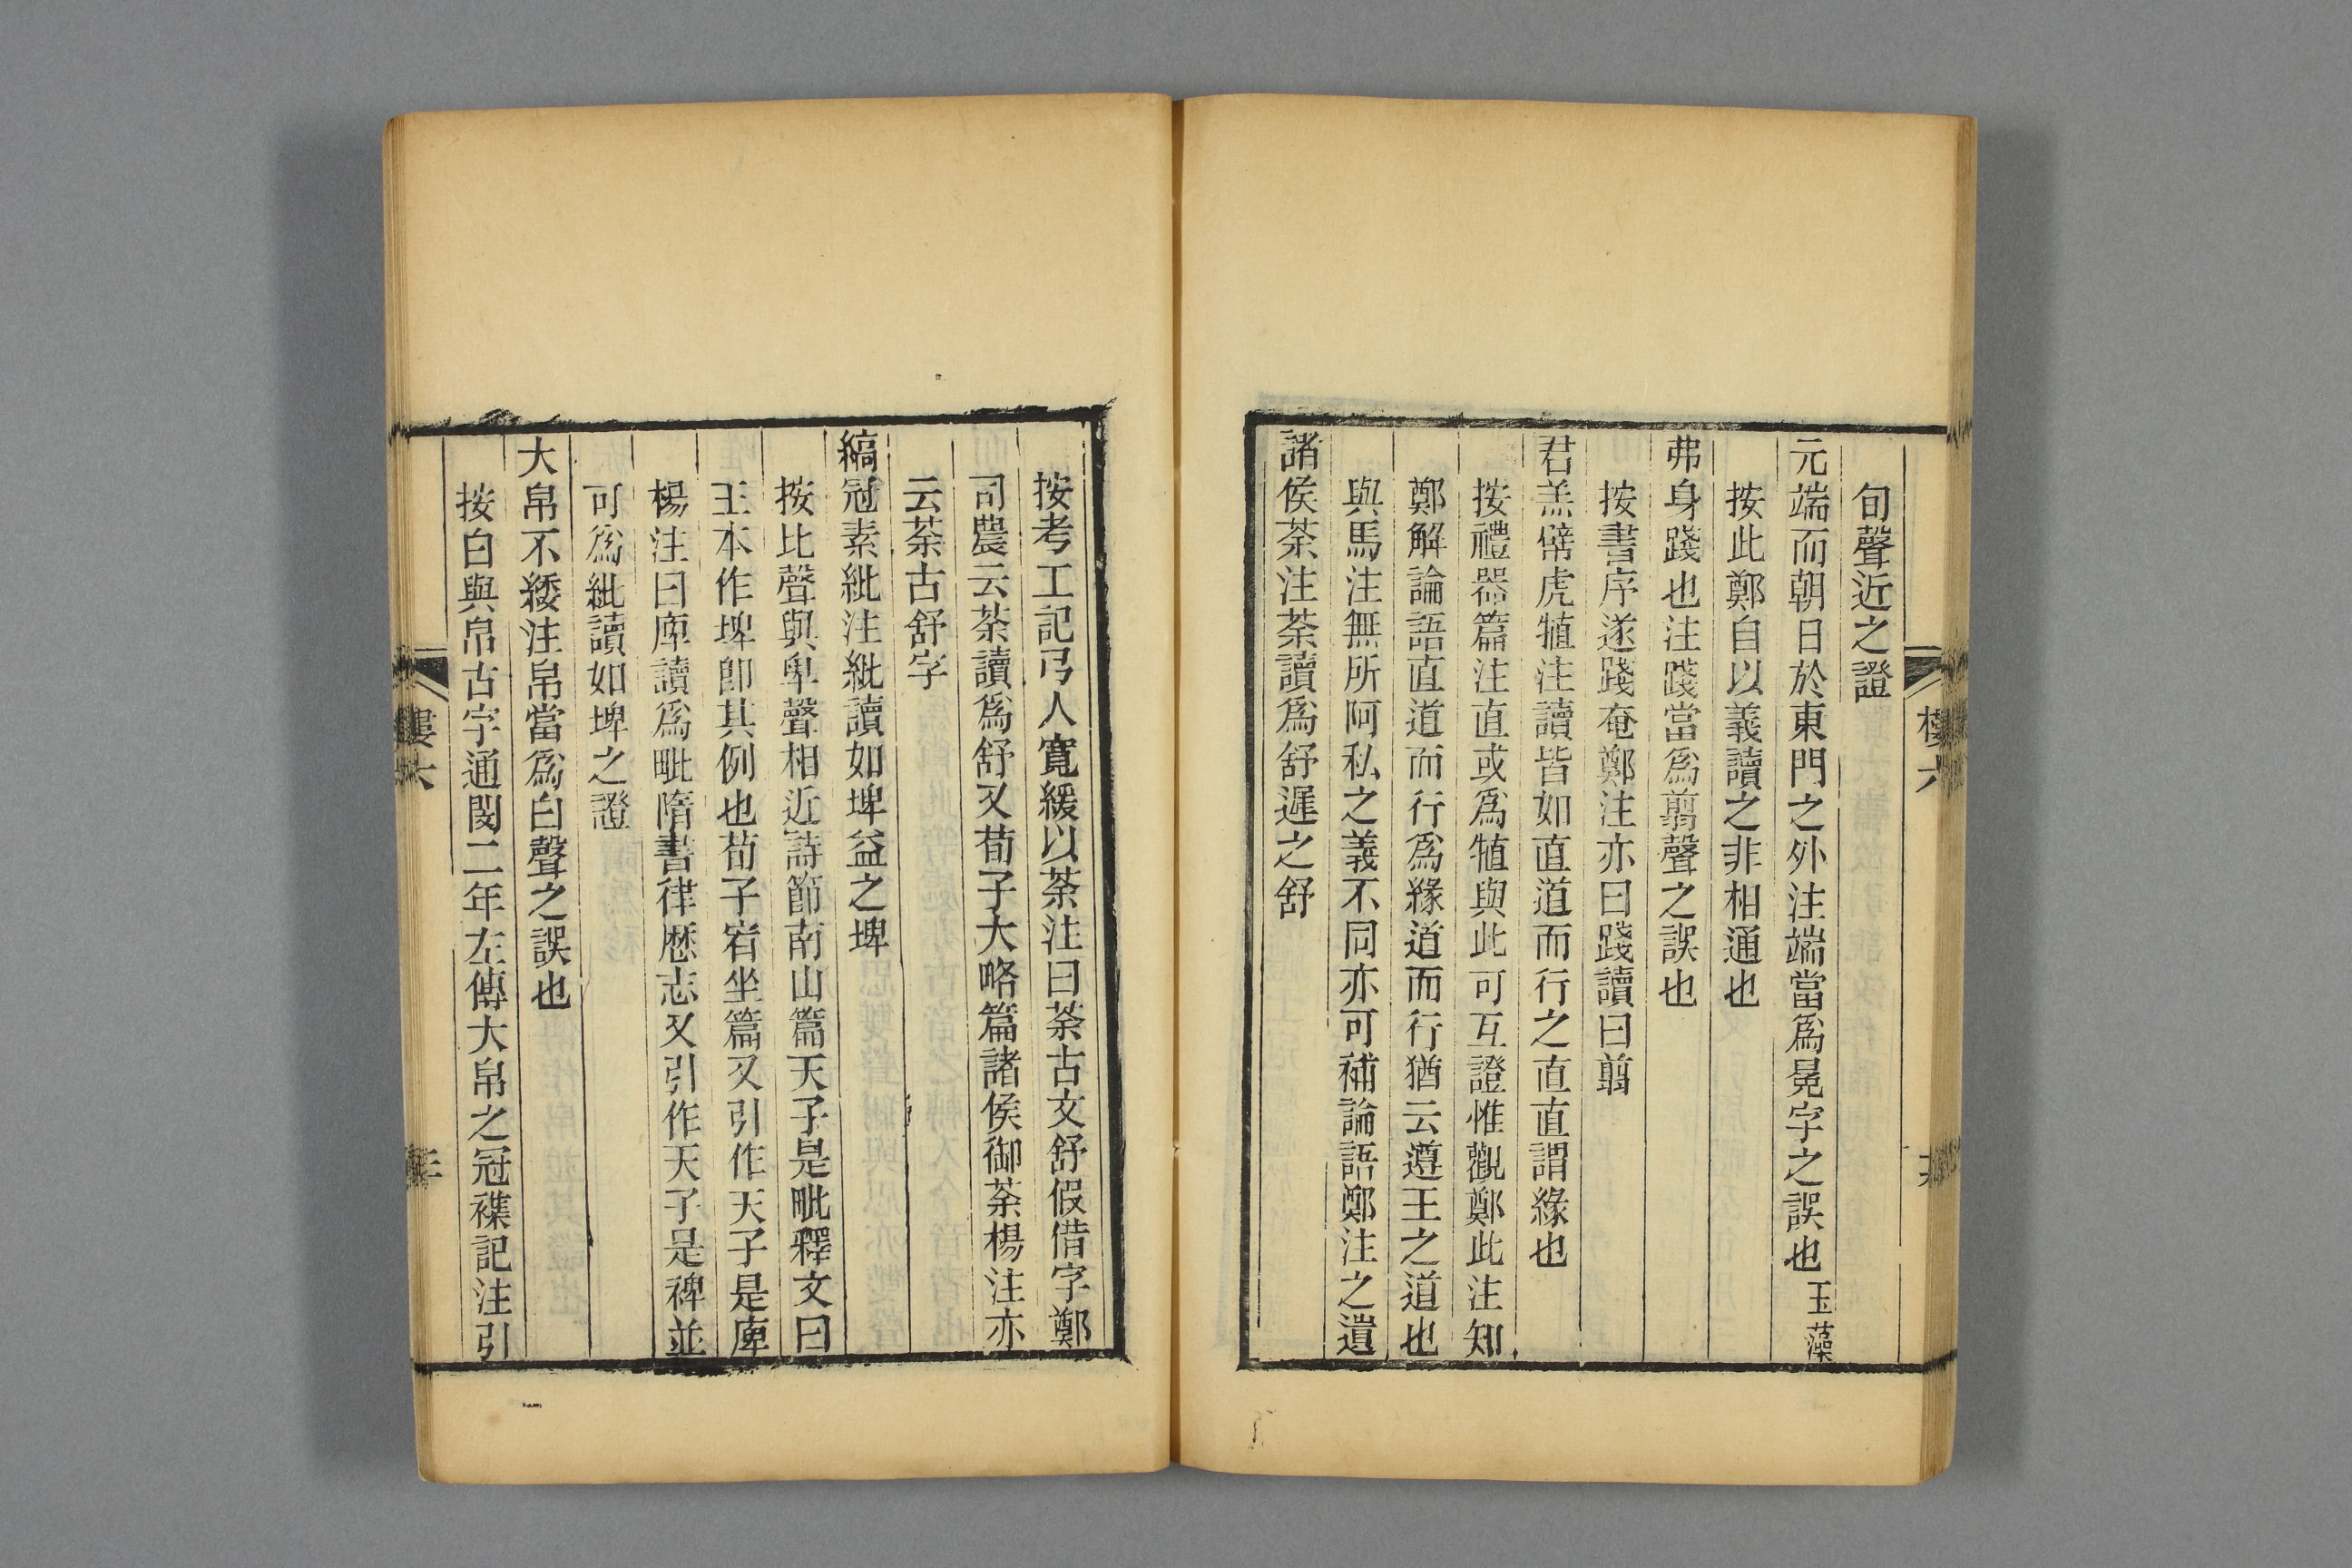 旬聲近之證
元端而朝日於東門之外注端當爲冕字之誤也玉藻
按此鄭自以義讀之非相通也
弗身踐也注踐當爲翦聲之誤也
按書序遂踐奄鄭注亦曰踐讀曰翦
君羔幦虎犆注讀皆如直道而行之直直謂緣也
按禮器篇注直或爲犆與此可互證惟觀鄭此注知
鄭解論語直道而行爲緣道而行猶云遵王之道也
與馬注無所阿私之義不同亦可補論語鄭注之遺
諸侯荼注荼讀爲舒遲之舒
按考工記弓人寬緩以荼注曰荼古文舒假借字鄭
司農云荼讀爲舒又荀子大略篇諸侯御荼楊注亦
云荼古舒字
縞冠素紕注紕讀如埤益之埤
按比聲與卑聲相近詩節南山篇天子是毗釋文曰
王本作埤卽其例也荀子宥坐篇又引作天子是庳
楊注曰庳讀爲毗隋書律厯志又引作天子是裨並
可爲紕讀如埤之證
大帛不緌注帛當爲白聲之誤也
按白與帛古字通閔二年左傳大帛之冠襍記注引
樓六